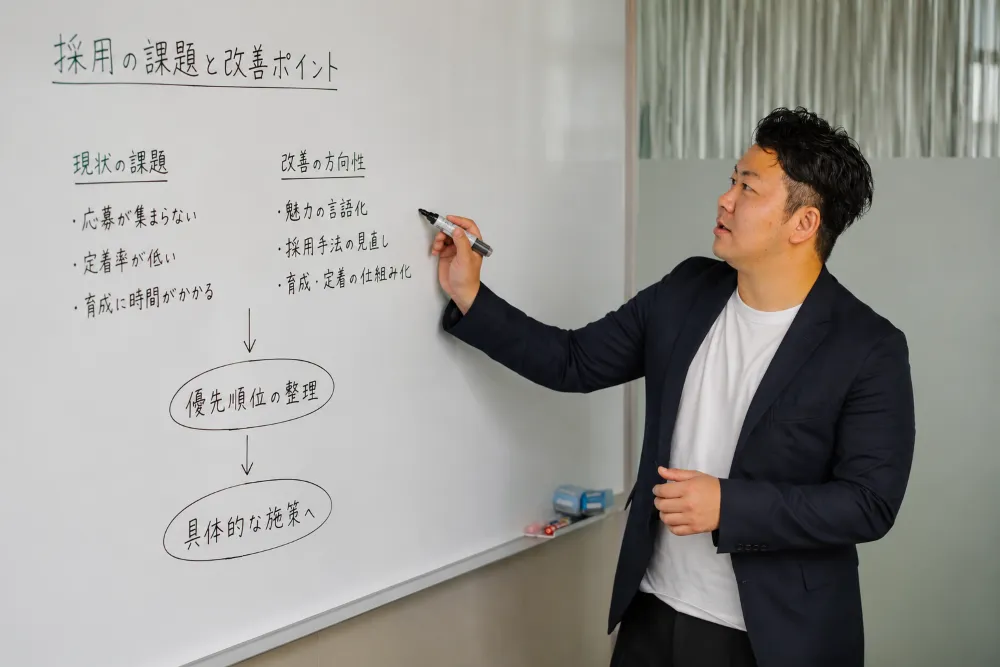 採用の課題と改善ポイント
現状の課題
・応募が集まらない
・定着率が低い
・育成に時間がかかる
改善の方向性
・魅力の言語化
・採用手法の見直し
・育成・定着の仕組み化
優先順位の整理
具体的な施策へ